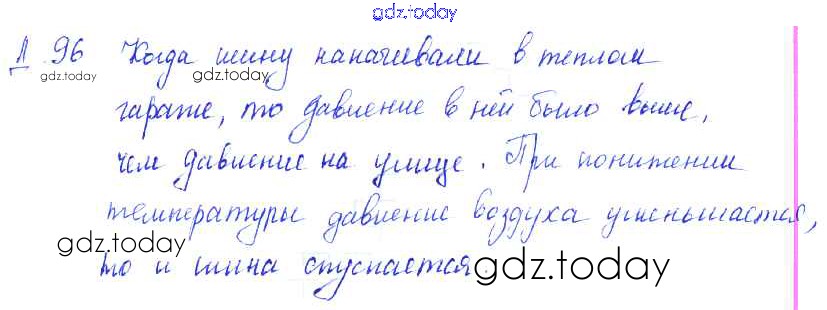 gdz.today
Д 96 Когда шину накачивали в теплом
gdz.today gdz.today
гараже, то давление в ней было выше,
чем давление на улице. При понижении
температуры давление воздуха уменьшается,
gdz.today
то и шина спускается.
gdz.today